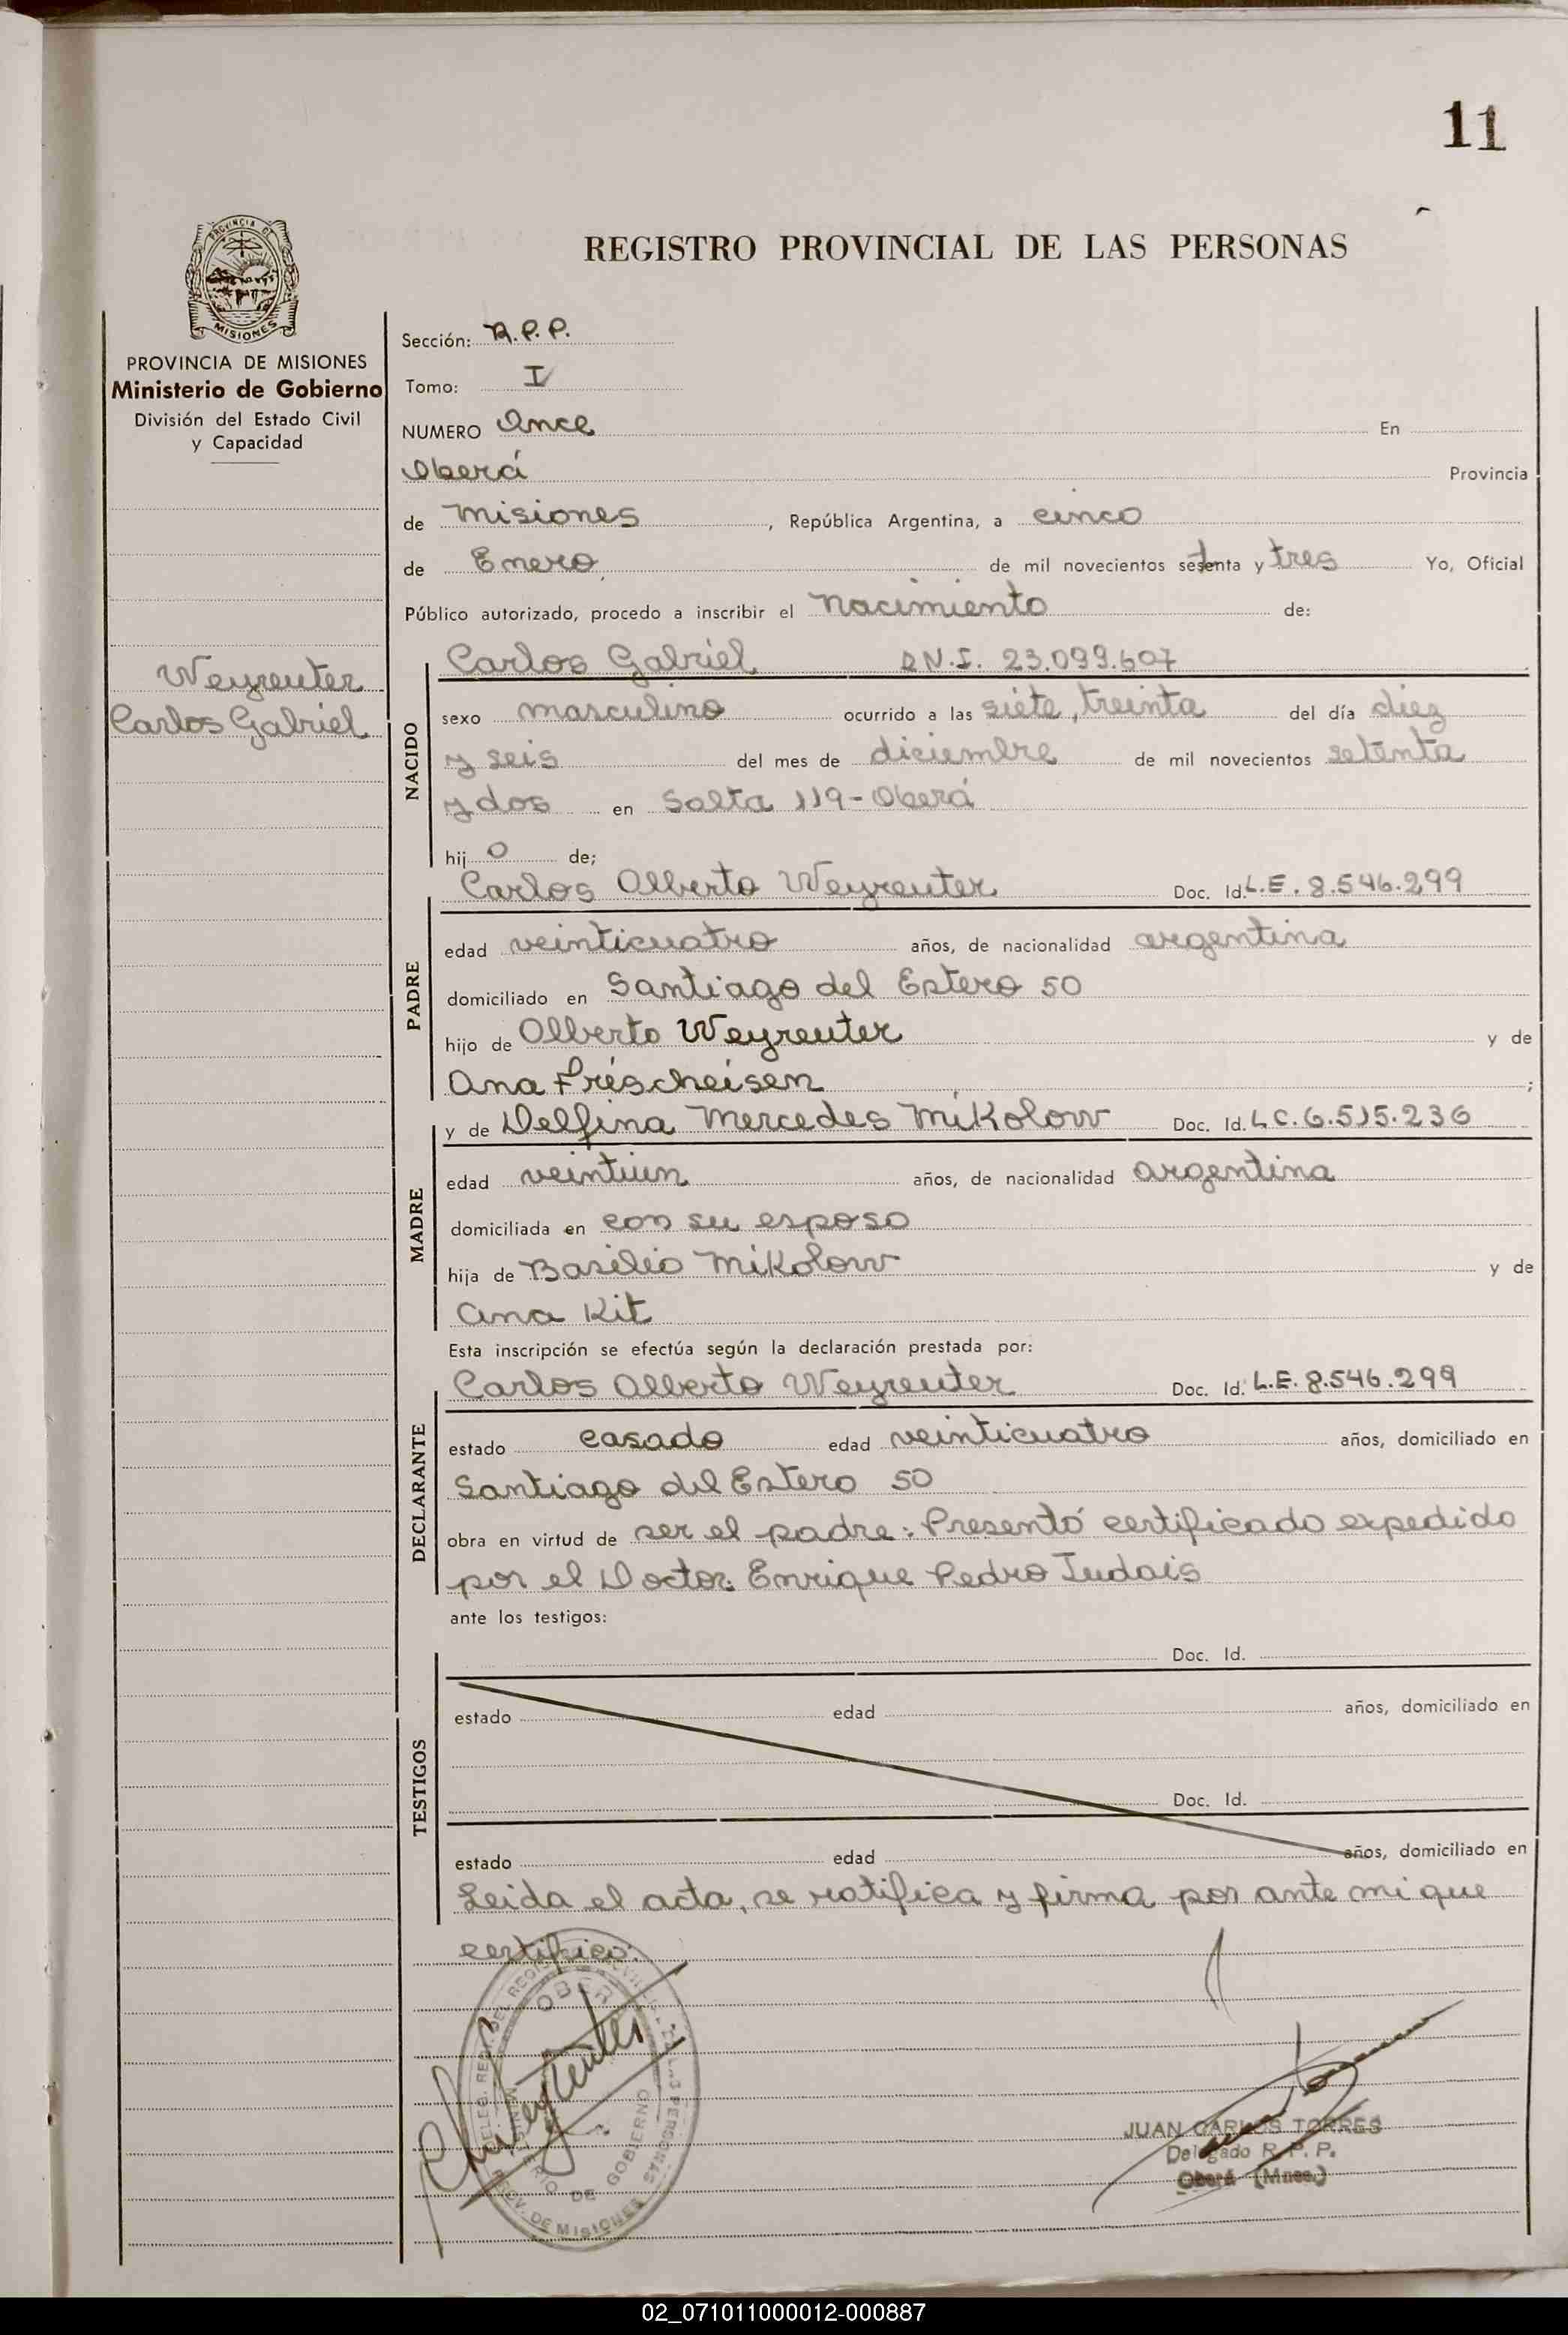 11
REGISTRO PROVINCIAL DE LAS PERSONAS
PROVINCIA DE MISIONES
Ministerio de Gobierno
División del Estado Civil
y Capacidad
Weyreuter
Carlos Gabriel
Sección: R.P.P.
Tomo: I
NUMERO Once En
Oberá Provincia
de Misiones, República Argentina, a cinco
de Enero de mil novecientos setenta y tres Yo, Oficial
Público autorizado, procedo a inscribir el nacimiento de:
Carlos Gabriel D.N.I. 23.099.607
NACIDO
sexo masculino ocurrido a las siete, treinta del día diez
y seis del mes de diciembre de mil novecientos setenta
y dos en Salta 119-Oberá
hijo de;
Carlos Alberto Weyreuter Doc. Id. L.E. 8.546.299
PADRE
edad veinticuatro años, de nacionalidad argentina
domiciliado en Santiago del Estero 50
hijo de Alberto Weyreuter y de
Ana Fréscheisen;
y de Delfina Mercedes Mikolow Doc. Id. L.C. 6.515.236
MADRE
edad veintiún años, de nacionalidad argentina
domiciliada en con su esposo
hija de Basilio Mikolow y de
Ana Kit
Esta inscripción se efectúa según la declaración prestada por:
Carlos Alberto Weyreuter Doc. Id. L.E. 8.546.299
DECLARANTE
estado casado edad veinticuatro años, domiciliado en
Santiago del Estero 50
obra en virtud de ser el padre: Presentó certificado expedido
por el Doctor: Enrique Pedro Judais
ante los testigos:
Doc. Id.
TESTIGOS
estado edad años, domiciliado en
Doc. Id.
estado edad años, domiciliado en
Leida el acta, se ratifica y firma por ante mi que
certifico:
OBERA
MINISTERIO DE GOBIERNO
PROV. DE MISIONES
JUAN CARLOS TORRES
Delegado R. P. P.
Oberá (Mnes.)
02_071011000012-000887